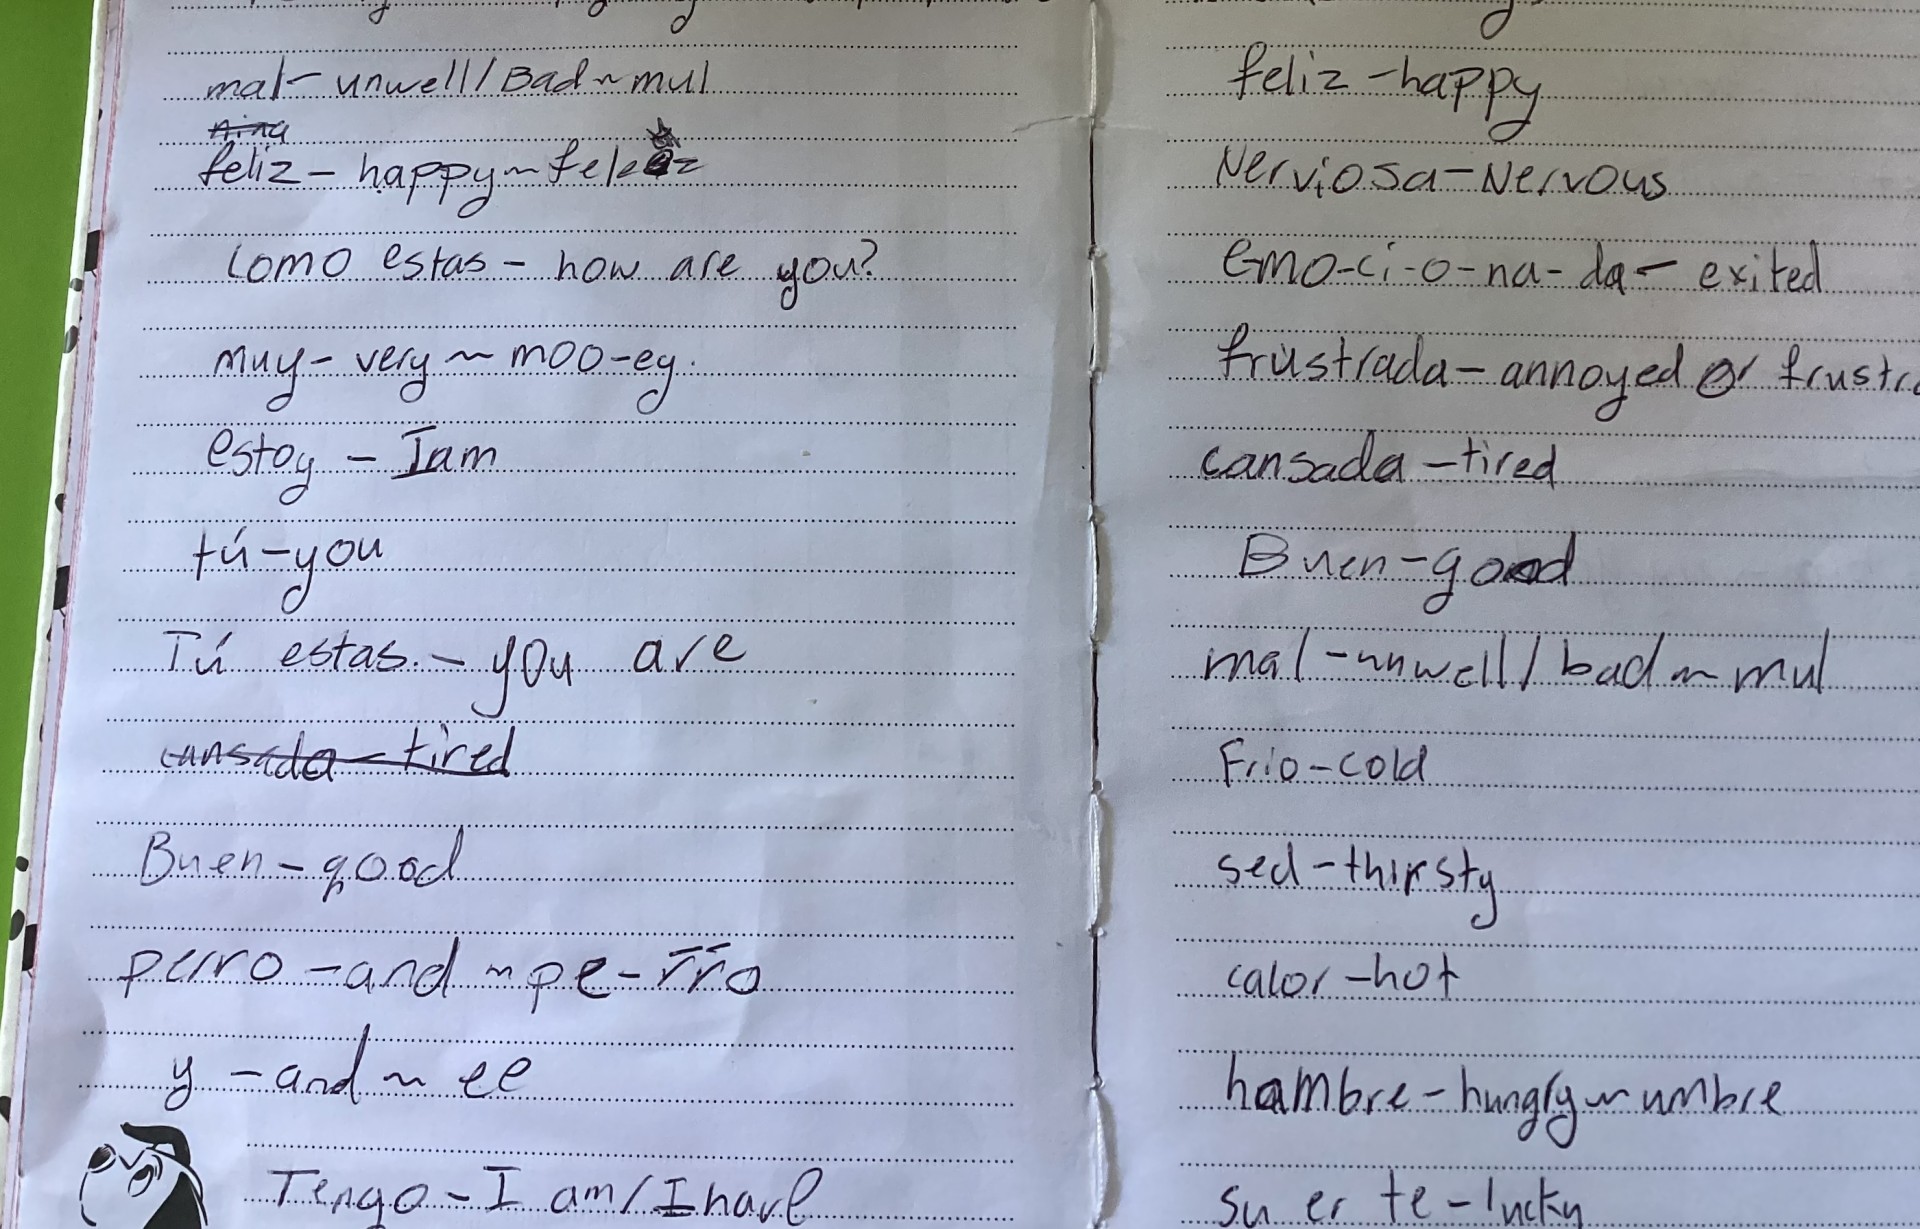 mal - unwell/Bad ~ mul
feliz - happy ~
como estas - how are you?
muy - very ~ moo-ey.
estoy - I am
tú - you
Tú estas. - you are
cansada - tired
Buen - good
perro - and ~ pe-r̄r̄o
y - and ~ ee
Tengo - I am/I have
feliz - happy
Nerviosa - Nervous
emo-ci-o-na-da - exited
frustrada - annoyed or
cansada - tired
Buen - good
mal - unwell/bad ~ mul
Frio - cold
sed - thirsty
calor - hot
hambre - hungry ~ umbre
su er te - lucky